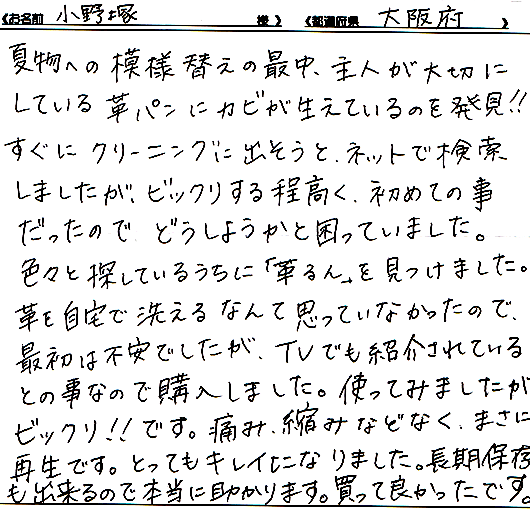 《お名前 小野塚 様》 《都道府県 大阪府 》
夏物への模様替えの最中、主人が大切に
している革パンにカビが生えているのを発見!!
すぐにクリーニングに出そうと、ネットで検索
しましたが、ビックリする程高く、初めての事
だったので、どうしようかと困っていました。
色々と探しているうちに「革るん」を見つけました。
革を自宅で洗えるなんて思っていなかったので、
最初は不安でしたが、TVでも紹介されている
との事なので購入しました。使ってみましたが
ビックリ!!です。痛み、縮みなどなく、まさに
再生です。とってもキレイになりました。長期保存
も出来るので本当に助かります。買って良かったです。